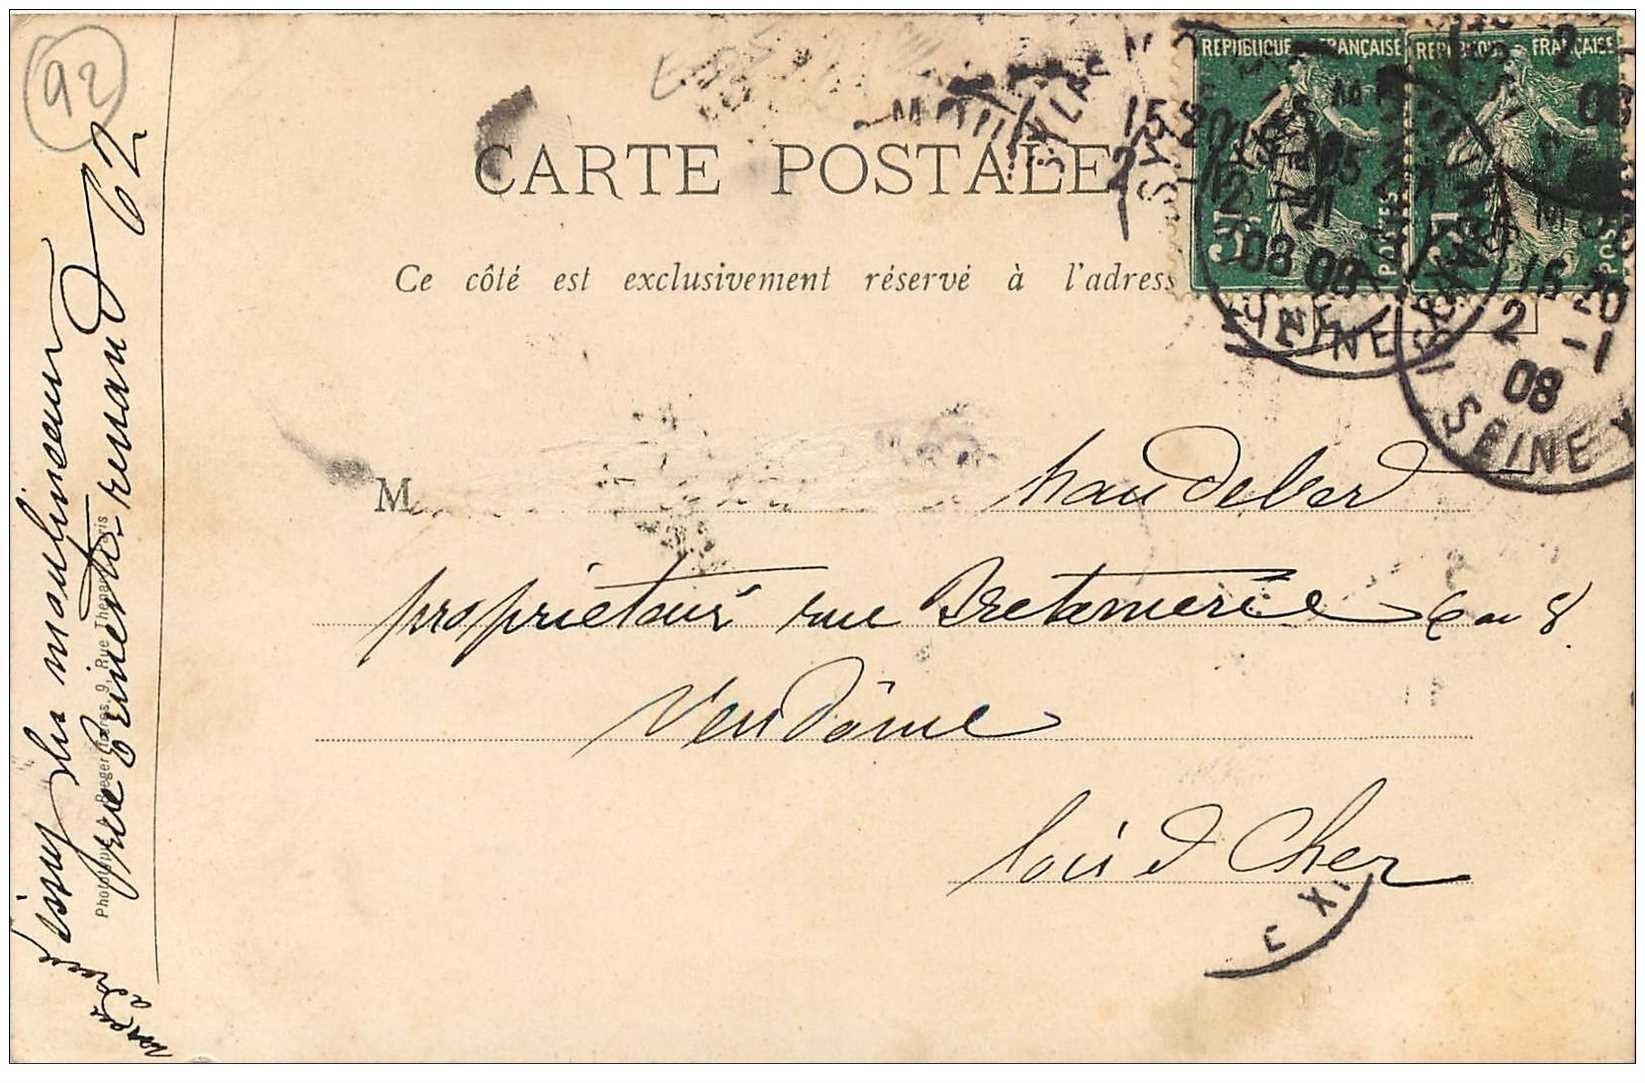 92
CARTE POSTALE
Ce côté est exclusivement réservé à l'adress
REPUBLIQUE FRANÇAISE
5
POSTES
REPUBLIQUE FRANÇAISE
5
POST
15 20
2 -1
08
SEINE
15 20
2 -1
08
SEINE
M
haudeber
propriétaire rue Bretonnerie 6 ou 8
Vendôme
loir et Cher
E XI
issy les moulineaux
rue Ernest renand 62
adresse
Phototypie Baeger Frères, 9, Rue Thénard, Paris